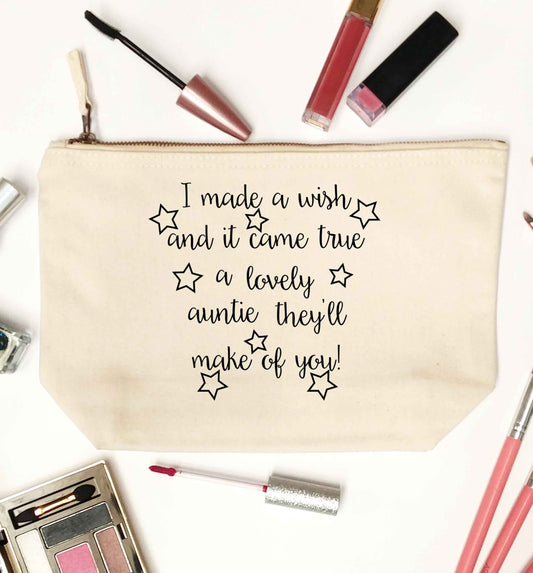 I made a wish
and it came true
a lovely
auntie they'll
make of you!